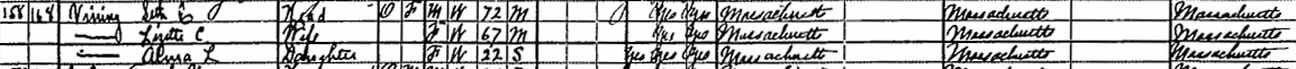 158 168 Vining Seth E Head O F M W 72 M Yes Yes Massachusetts Massachusetts Massachusetts
— Lizette C Wife F W 67 M Yes Yes Massachusetts Massachusetts Massachusetts
— Alma L Daughter F W 22 S Yes Yes Yes Massachusetts Massachusetts Massachusetts